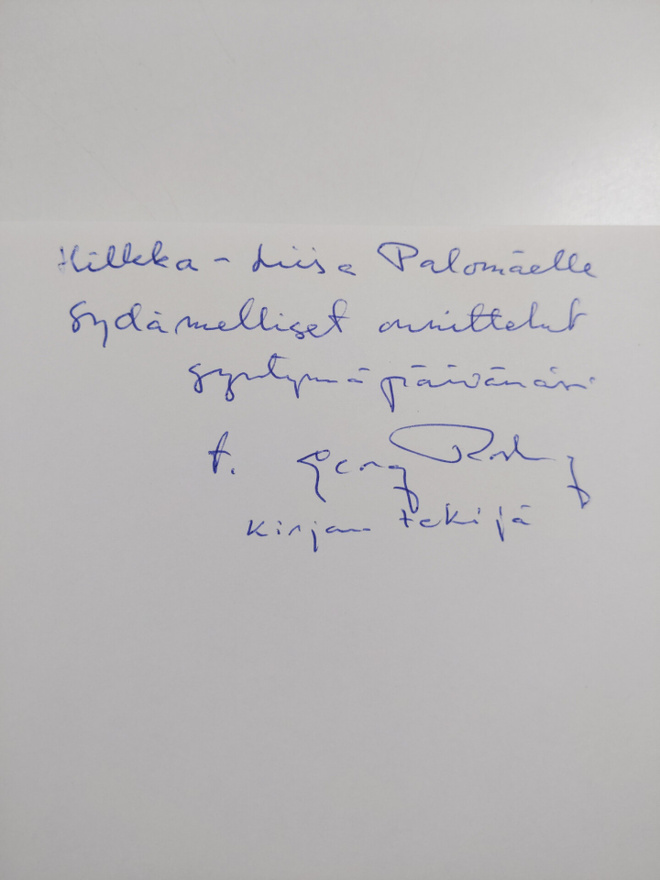 Hilkka - Liisa Palomäelle
Sydämelliset onnittelut
syntymäpäivänäsi
t. Georg
Kirjan tekijä